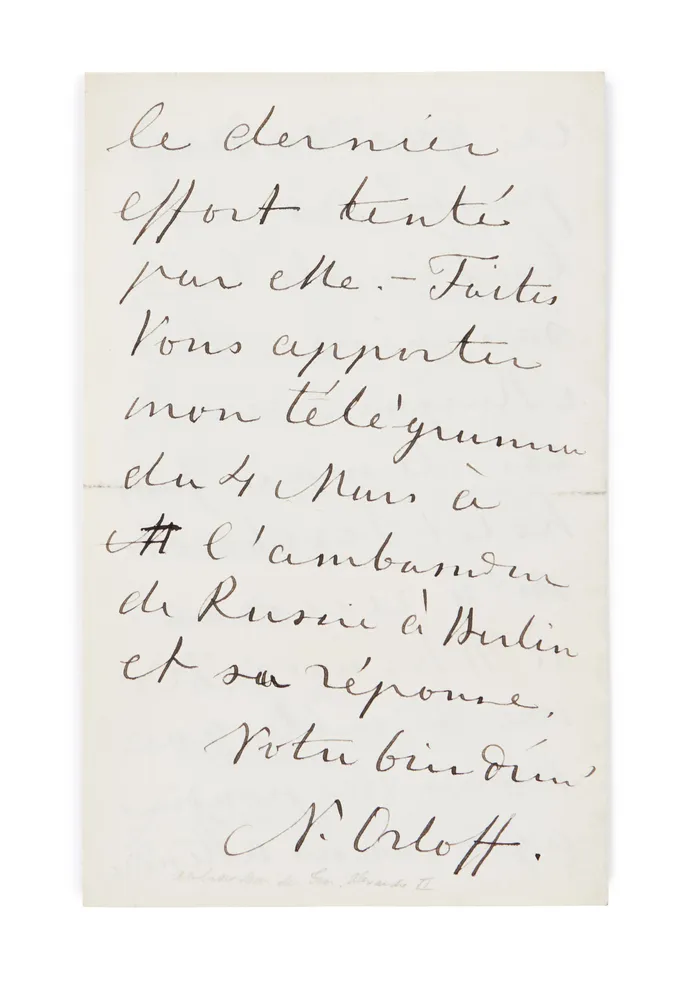 le dernier
effort tenté
par elle. – Faites
Vous apporter
mon télégramme
du 4 Mars à
l'ambassadeur
de Russie à Berlin
et sa réponse.
Votre bien dévoué
N. Orloff.